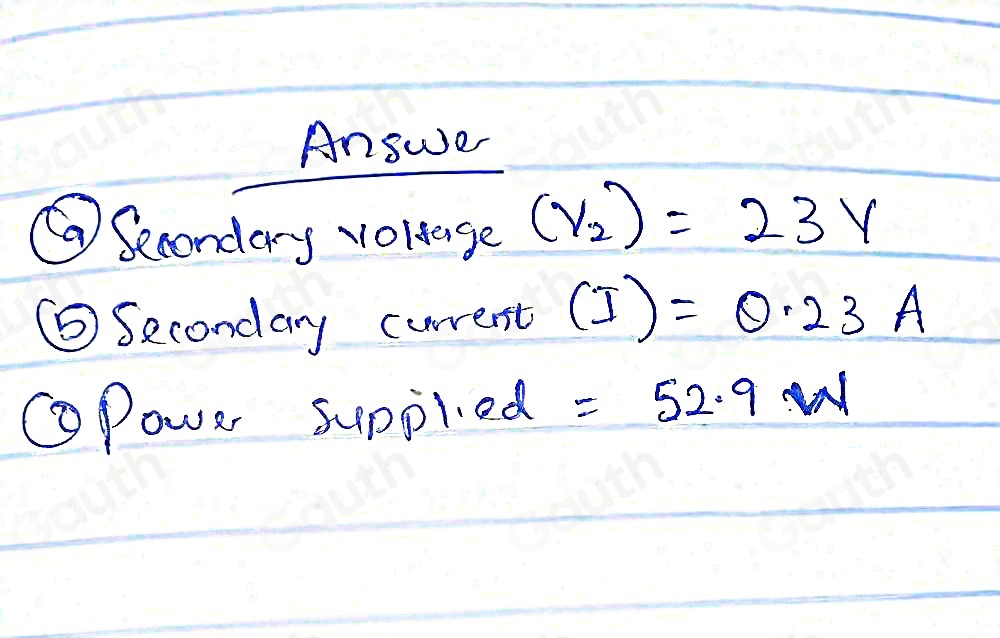 Answer
(a) Secondary voltage (V₂) = 23 V
(b) Secondary current (I) = 0.23 A
(c) Power supplied = 52.9 W
Gauth